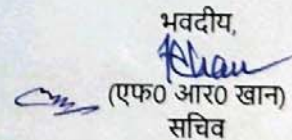 भवदीय,
(एफ0 आर0 खान)
सचिव